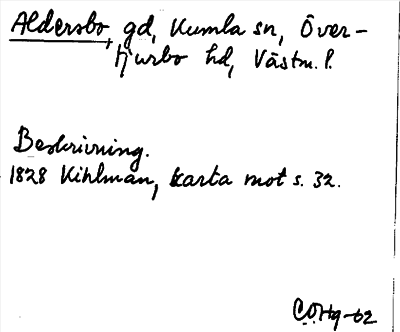 Aldersbo, gd, Kumla sn, Över-
tjurbo hd, Västm. l.
Beskrivning.
1828 Kihlman, karta mot s. 32.
CÖHg-62